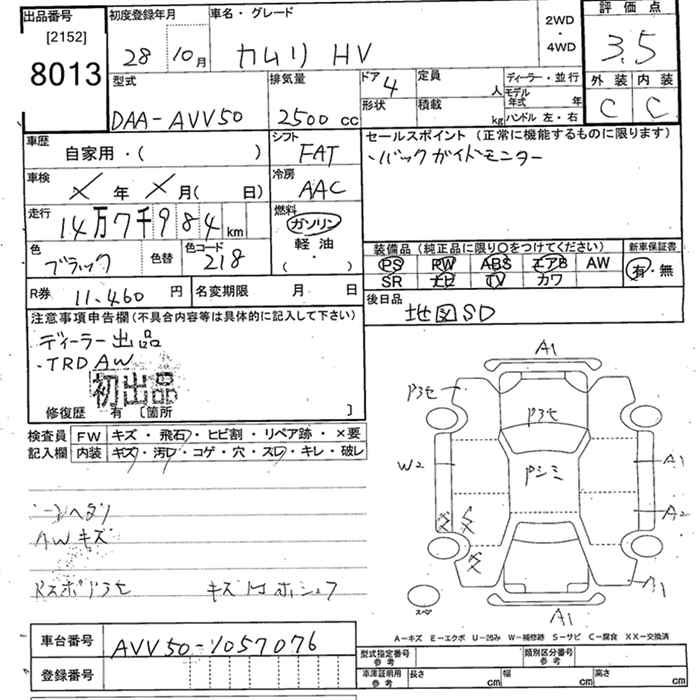 出品番号
[2152]
8013
初度登録年月
28 10月
車名・グレード
カムリ HV
2WD
・
4WD
評価点
3.5
外装 内装
C C
型式
DAA-AVV50
排気量
2500cc
ドア 4
形状
定員 人
積載 kg
ディーラー・並行
モデル年式 年
ハンドル 左・右
車歴
自家用・( )
シフト
FAT
車検
年 月( 日)
冷房
AAC
走行
14万7千984km
燃料
ガソリン
軽油
( ・ )
色
ブラック
色替
色コード
218
R券 11,460円
名変期限 月 日
セールスポイント(正常に機能するものに限ります)
・バックガイドモニター
装備品(純正品に限り○をつけてください)
PS PW ABS エアB AW
SR ナビ TV カワ
新車保証書
有・無
後日品
地図SD
注意事項申告欄(不具合内容等は具体的に記入して下さい)
ディーラー出品
・TRD AW
初出品
修復歴 有 〔箇所 〕
検査員記入欄
FW キズ・飛石・ヒビ割・リペア跡・×要
内装 キズ・汚レ・コゲ・穴・スレ・キレ・破レ
AWキズ
A1
Pスモ
W2
Pシミ
A1
A2
A1
スペア
A1
A－キズ E－エクボ U－凹み W－補修跡 S－サビ C－腐食 XX－交換済
車台番号
AVV50-1057076
登録番号
型式指定番号 参考
類別区分番号 参考
車庫証明用 参考
長さ cm 幅 cm 高さ cm